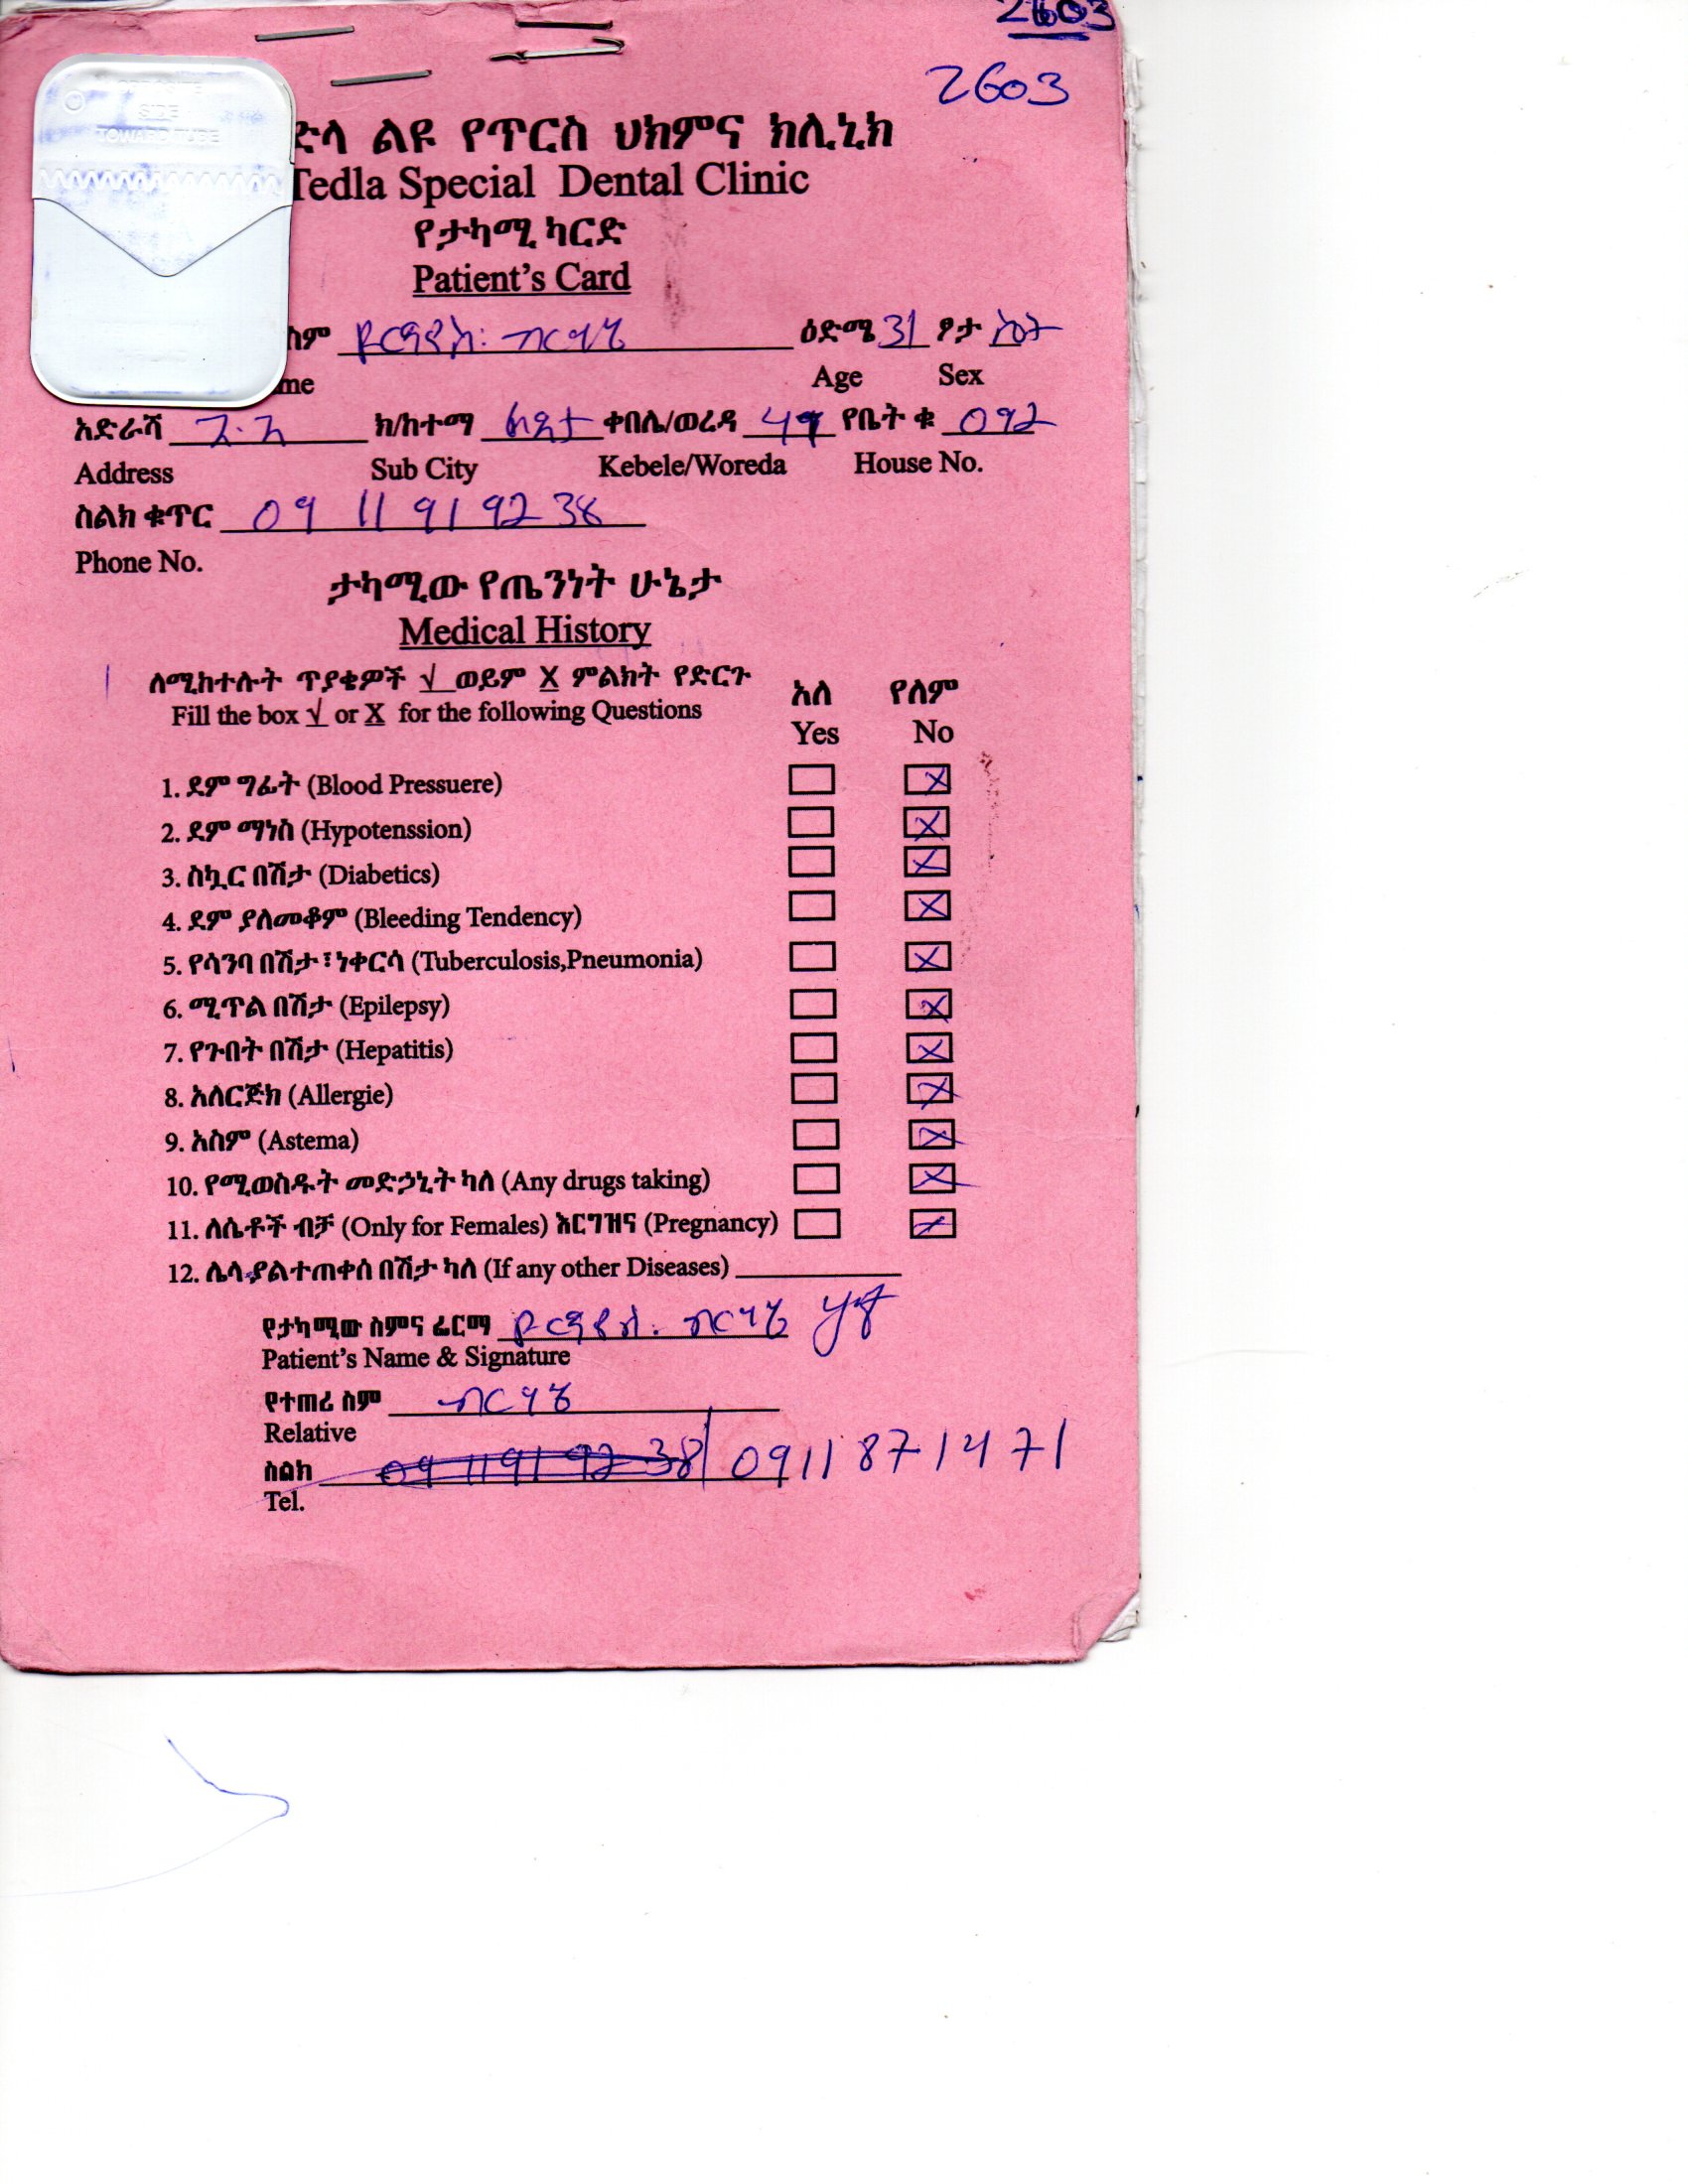 2603
2603
OPPOSITE
SIDE
TOWARD TUBE
ድላ ልዩ የጥርስ ህክምና ክሊኒክ
Tedla Special Dental Clinic
የታካሚ ካርድ
Patient's Card
ስም ዮርዳኖስ ብርሃኔ ዕድሜ 31 ፆታ ሴት
me Age Sex
አድራሻ አ.አ ክ/ከተማ ልደታ ቀበሌ/ወረዳ የቤት ቁ 092
Address Sub City Kebele/Woreda House No.
ስልክ ቁጥር 09 11 91 92 38
Phone No.
ታካሚው የጤንነት ሁኔታ
Medical History
ለሚከተሉት ጥያቄዎች √ ወይም X ምልክት የድርጉ
Fill the box √ or X for the following Questions
አለ የለም
Yes No
1. ደም ግፊት (Blood Pressuere) X
2. ደም ማነስ (Hypotenssion) X
3. ስኳር በሽታ (Diabetics) X
4. ደም ያለመቆም (Bleeding Tendency) X
5. የሳንባ በሽታ፣ነቀርሳ (Tuberculosis,Pneumonia) X
6. ሚጥል በሽታ (Epilepsy) X
7. የጉበት በሽታ (Hepatitis) X
8. አለርጅክ (Allergie) X
9. አስም (Astema) X
10. የሚወስዱት መድኃኒት ካለ (Any drugs taking) X
11. ለሴቶች ብቻ (Only for Females) እርግዝና (Pregnancy) X
12. ሌላ ያልተጠቀሰ በሽታ ካለ (If any other Diseases)
የታካሚው ስምና ፊርማ ዮርዳኖስ ብርሃኔ
Patient's Name & Signature
የተጠሪ ስም ብርሃኔ
Relative
ስልክ 09 11 91 92 38 0911 871471
Tel.